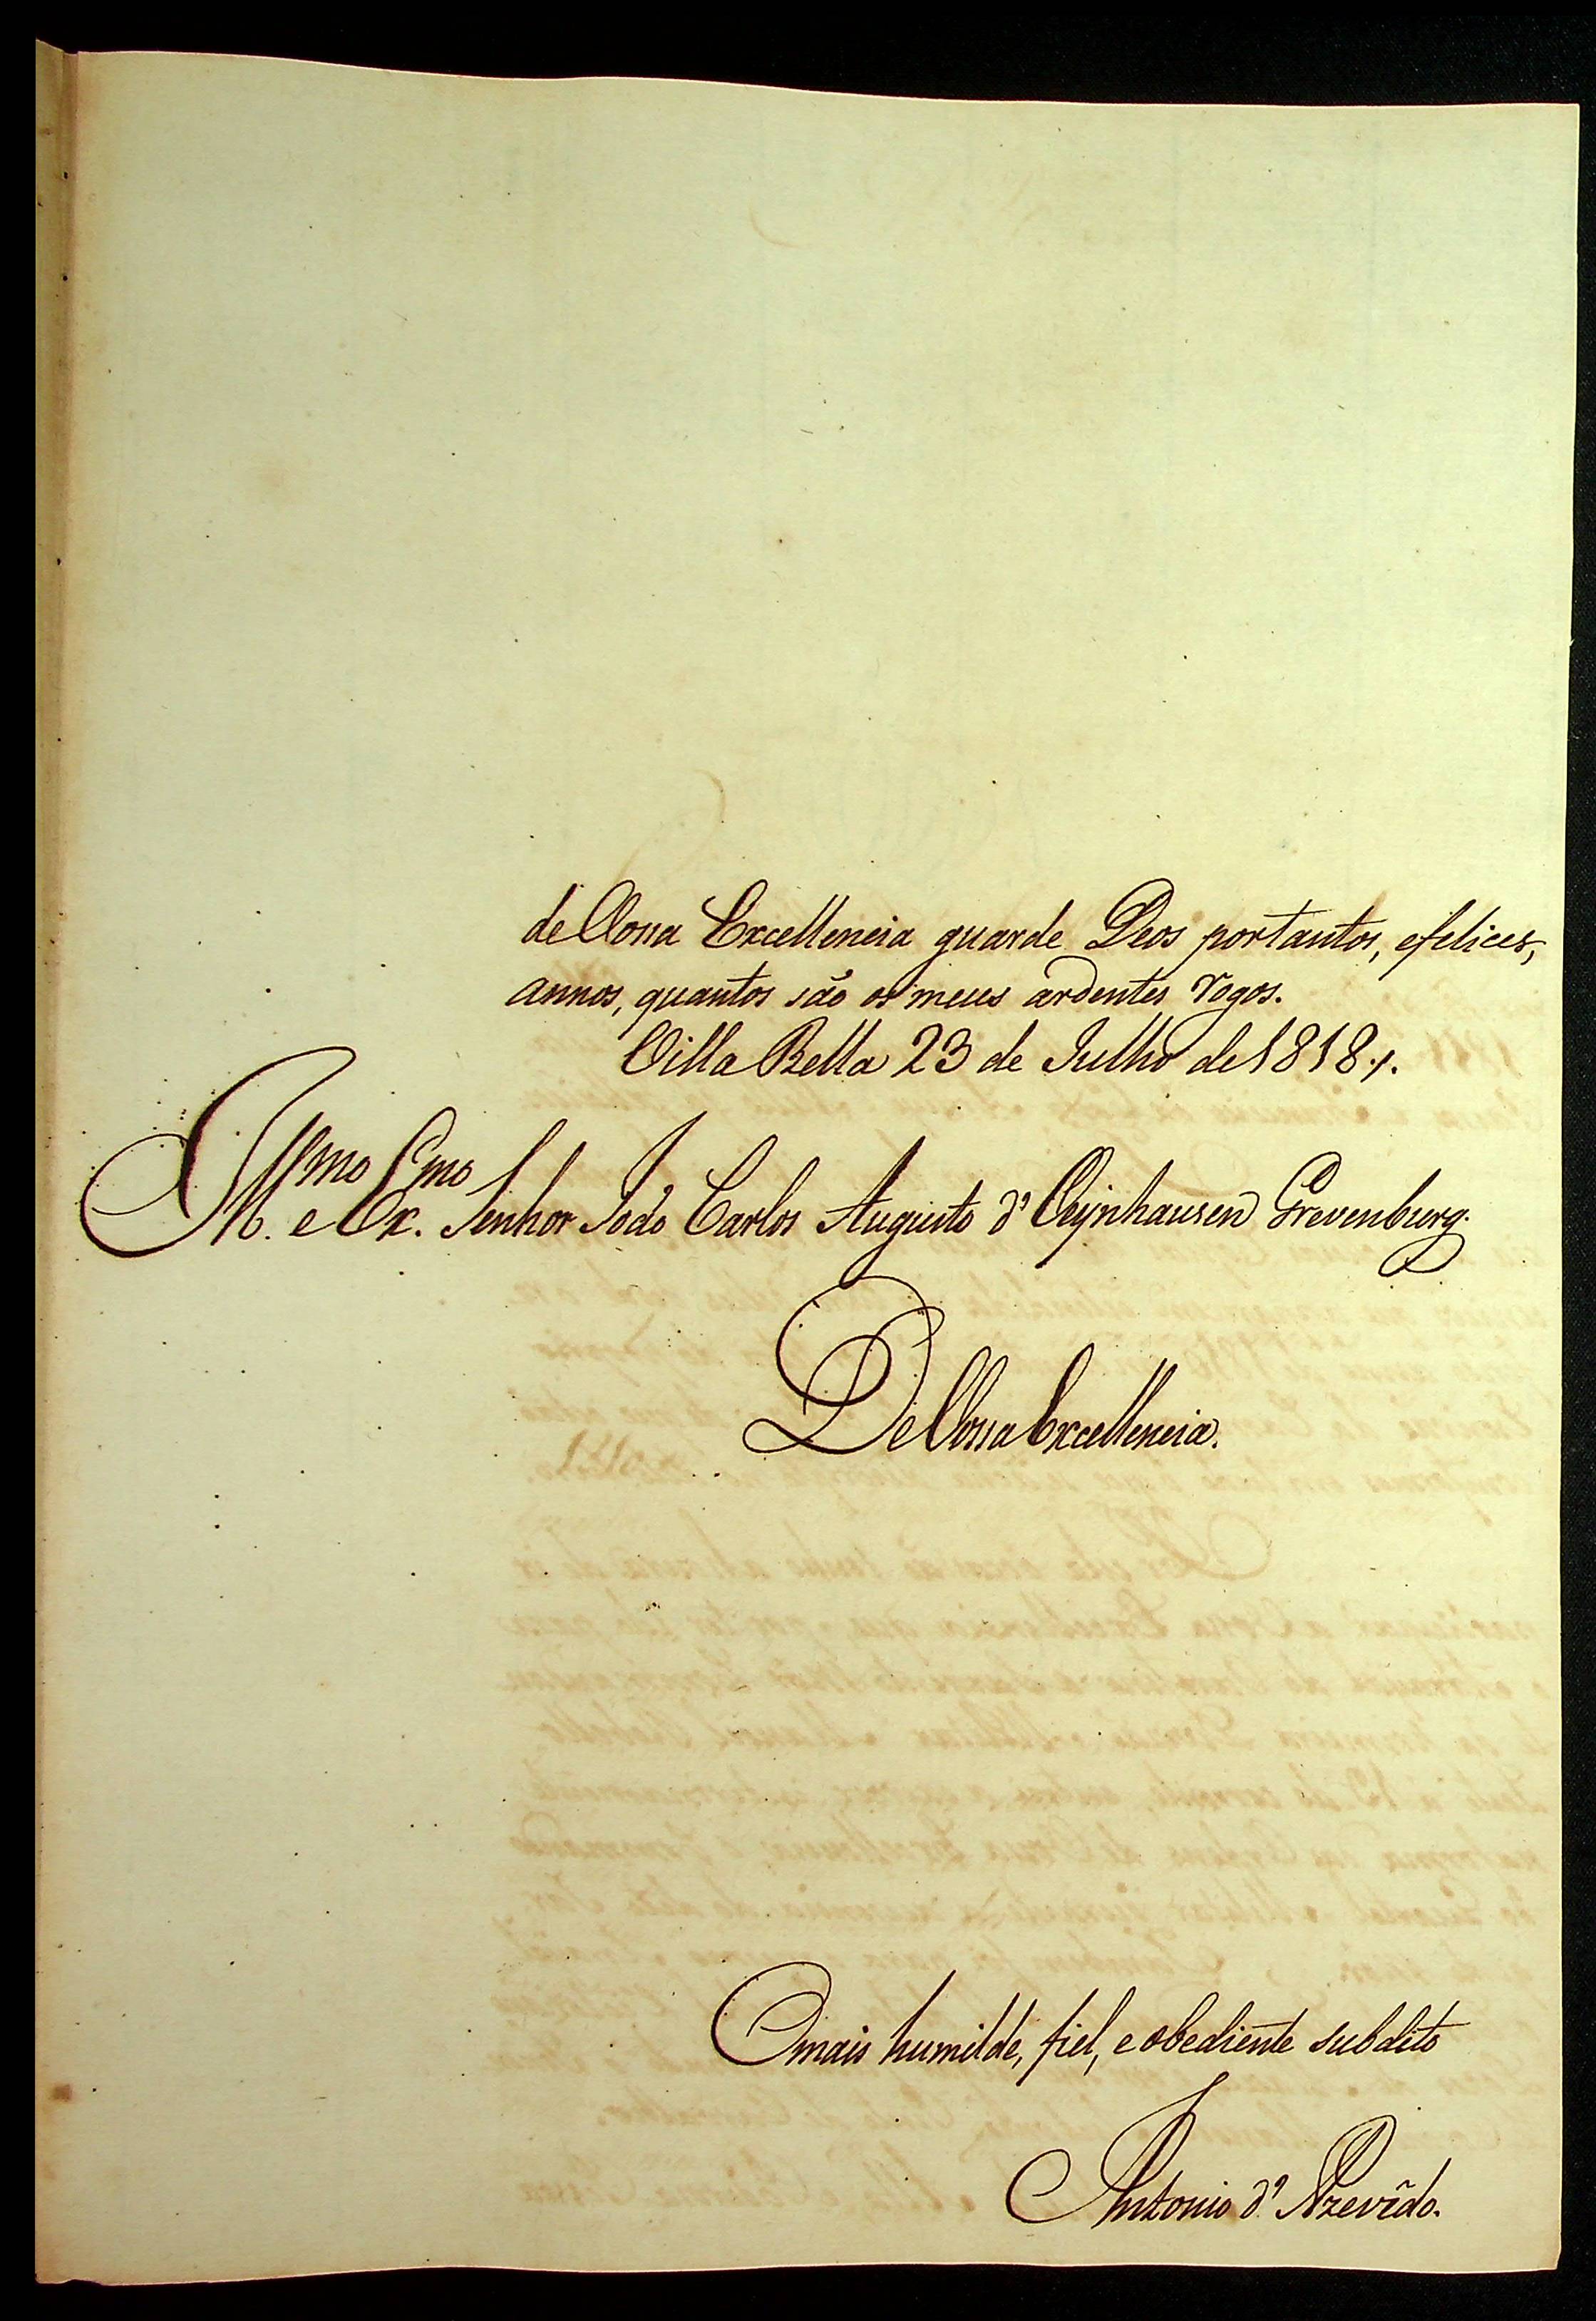 de Vossa Excellencia guarde Deos por tantos, e felices,
annos, quantos são os meus ardentes rogos.
Villa Bella 23 de Julho de 1818.
Ill.mo e Ex.mo Senhor João Carlos Augusto d' Oeynhausen Grevenburg.
De Vossa Excellencia.
O mais humilde, fiel, e obediente subdito
Antonio d' Azevêdo.